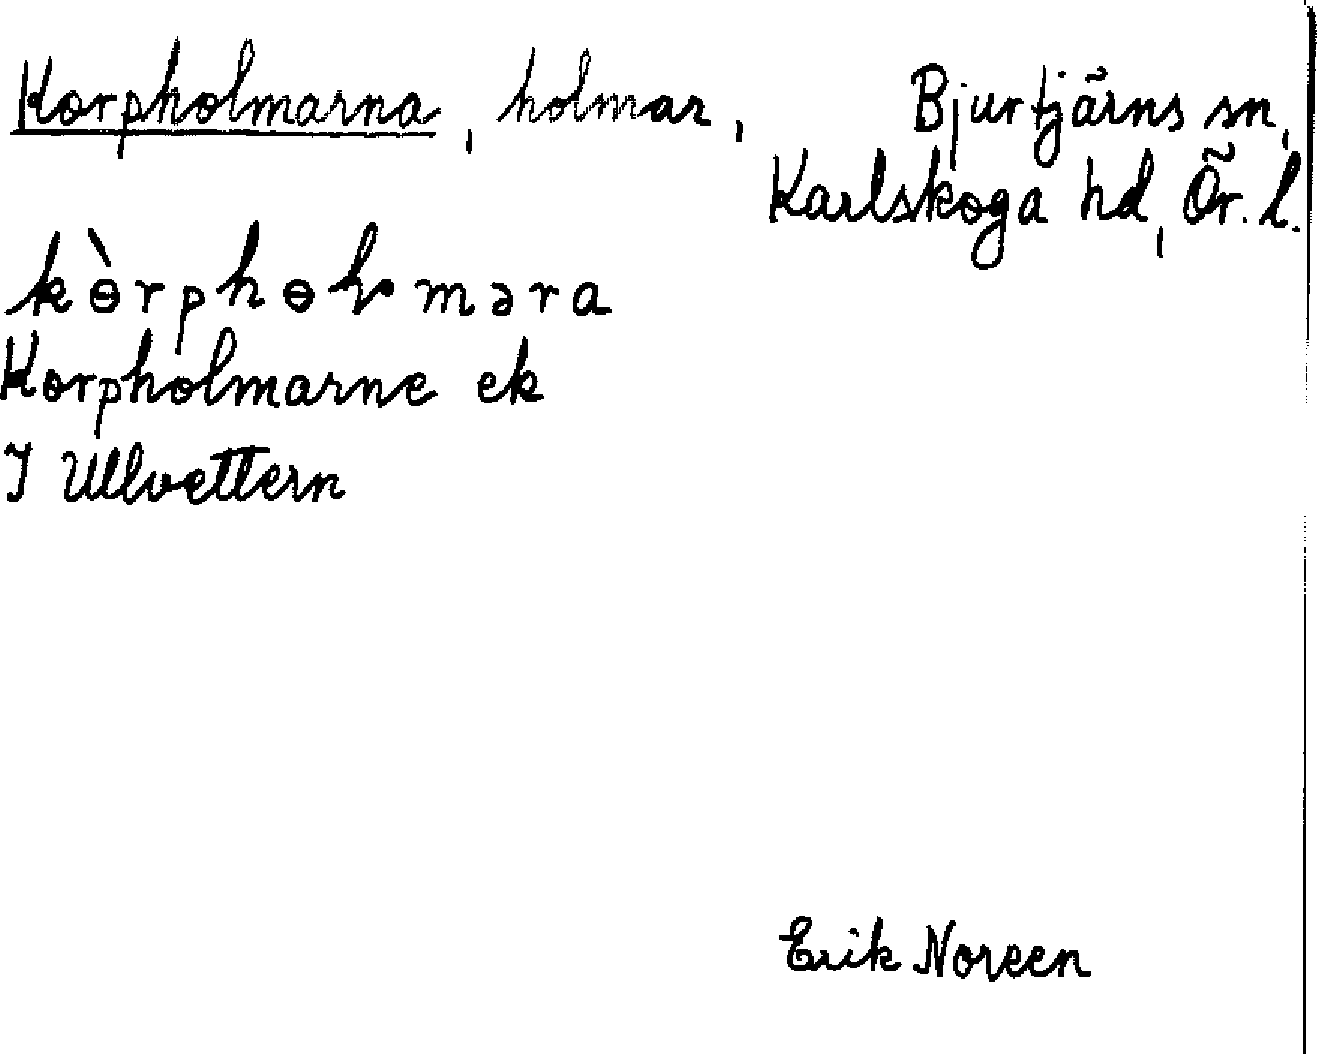 Korpholmarna, holmar, Bjurtjärns sn,
Karlskoga hd, Ör. l.
kɵ̀rphɵɫmǝra
Korpholmarne ek
I Ullvettern
Erik Noreen